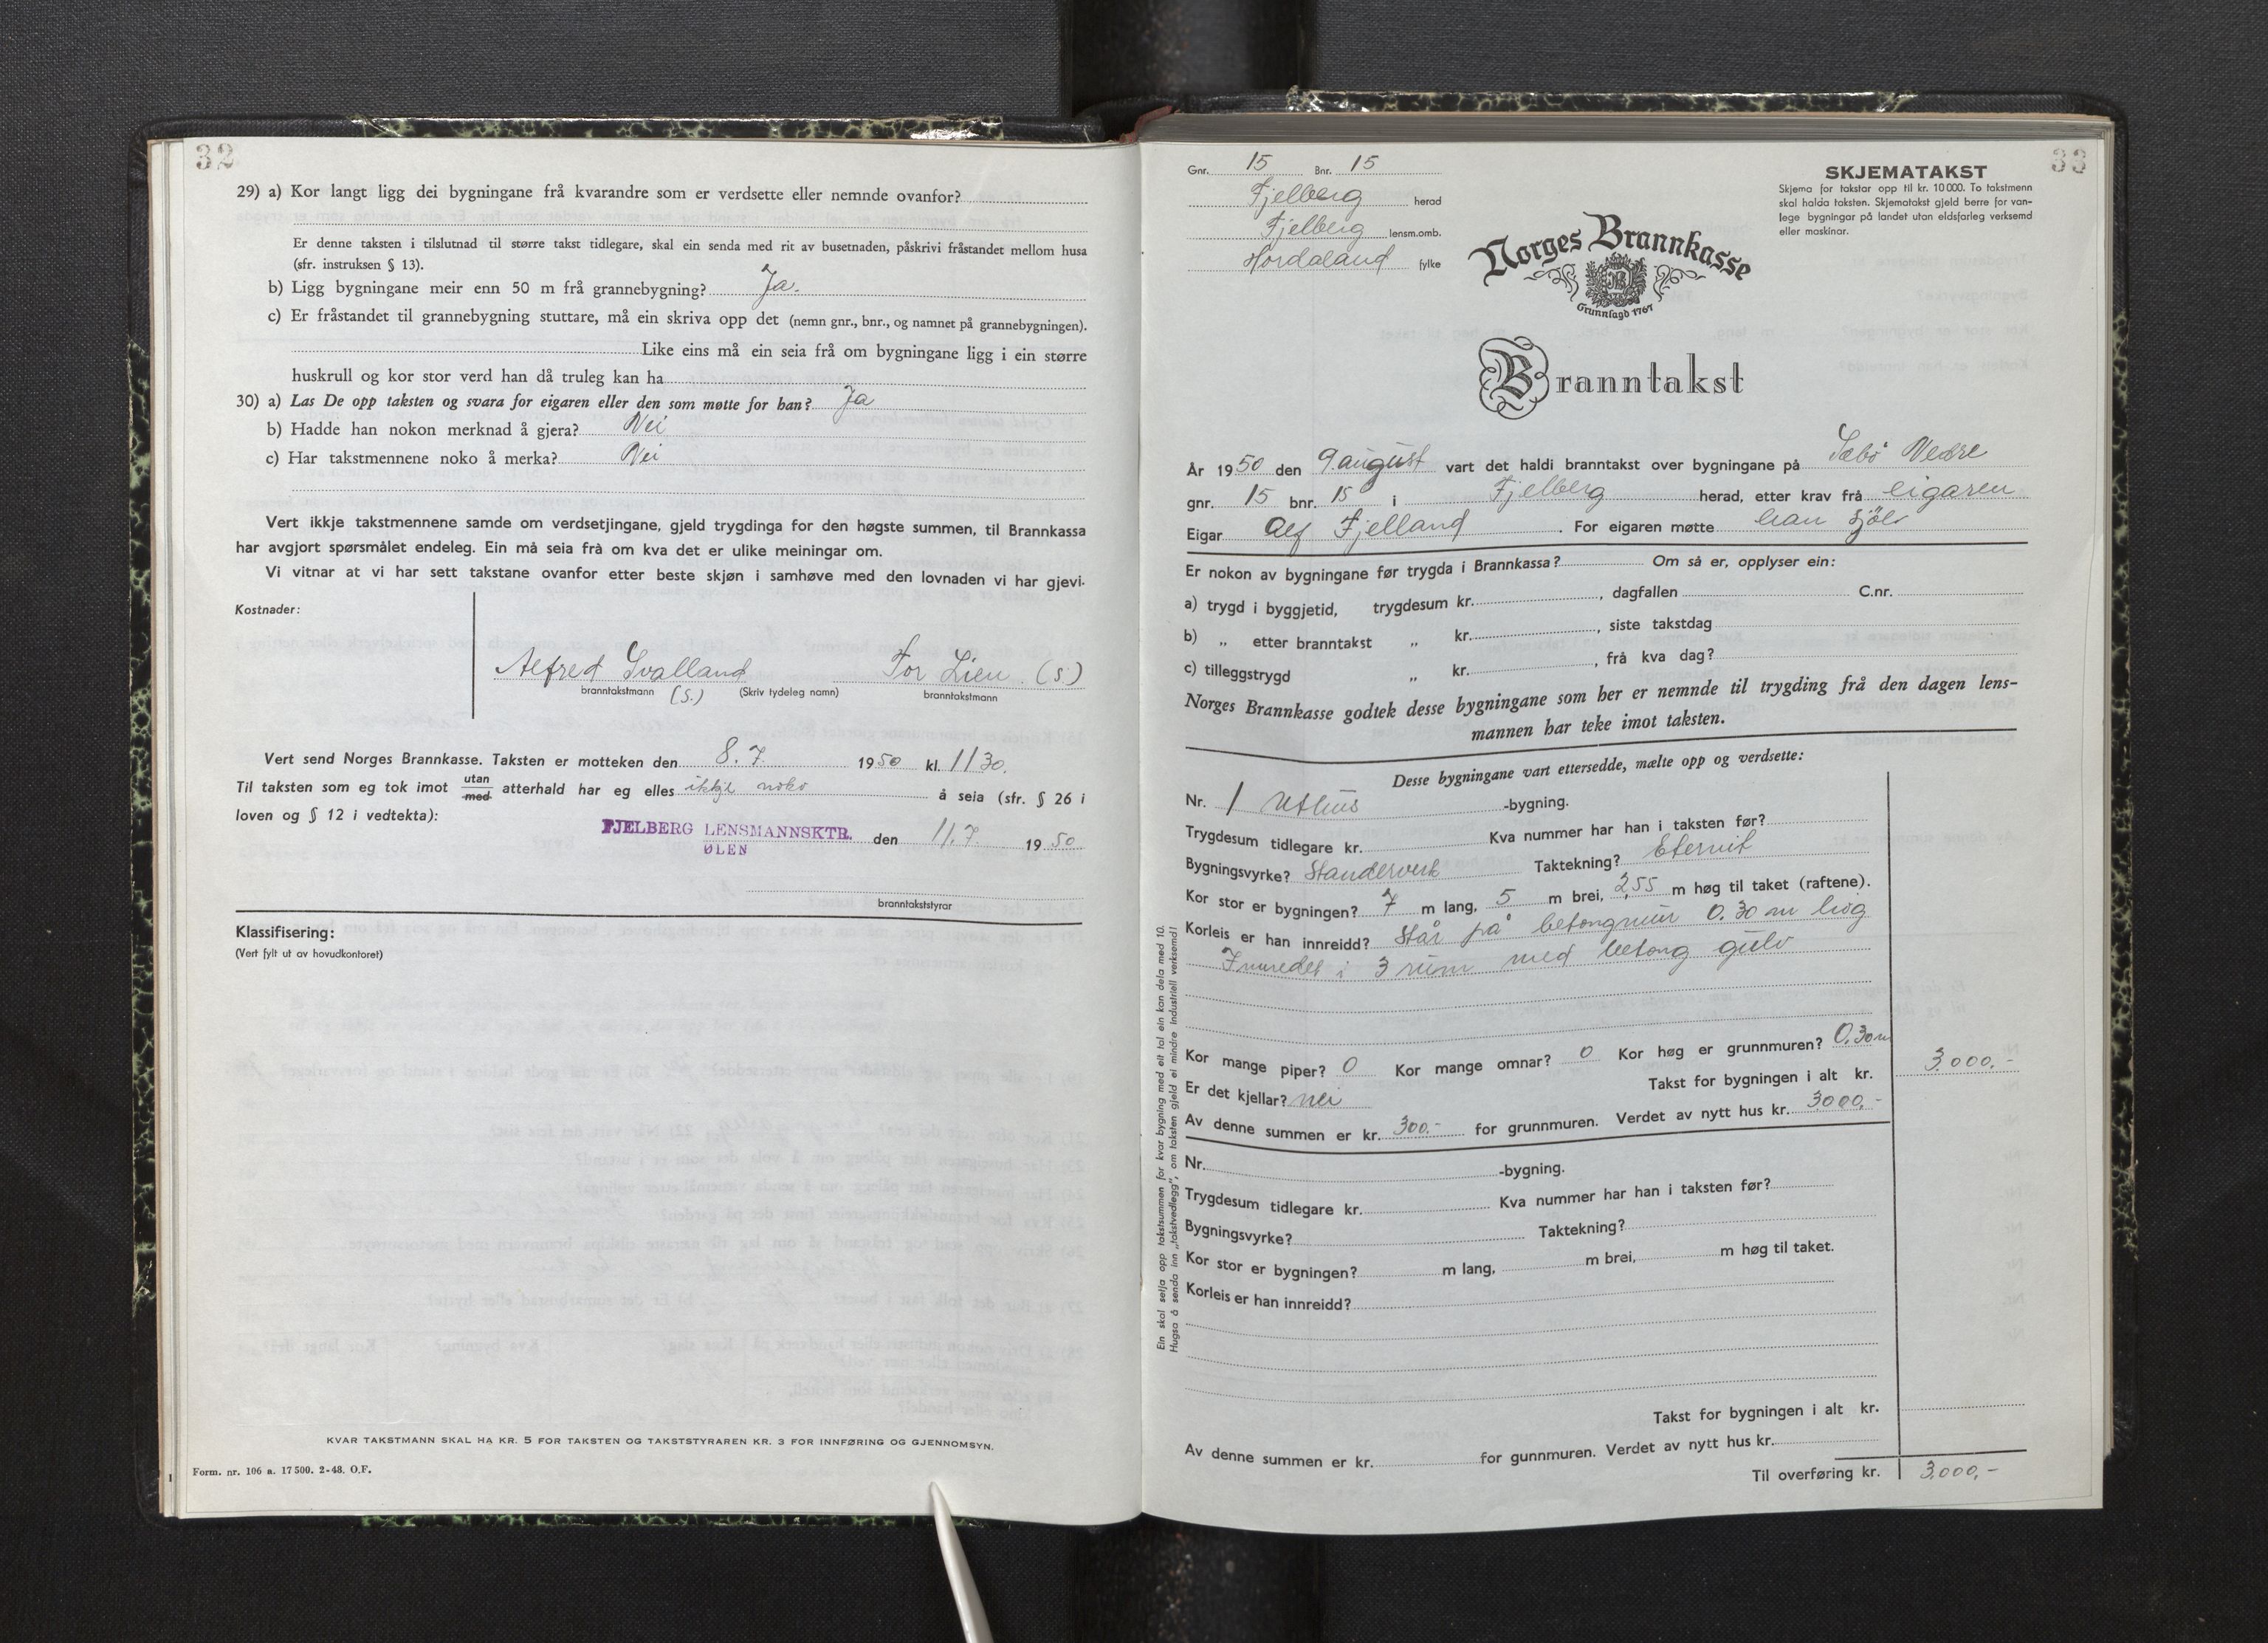 32
29) a) Kor langt ligg dei bygningane frå kvarandre som er verdsette eller nemnde ovanfor?
Er denne taksten i tilslutnad til større takst tidlegare, skal ein senda med rit av busetnaden, påskrivi fråstandet mellom husa
(sfr. instruksen § 13).
b) Ligg bygningane meir enn 50 m frå grannebygning? Ja.
c) Er fråstandet til grannebygning stuttare, må ein skriva opp det (nemn gnr., bnr., og namnet på grannebygningen).
Like eins må ein seia frå om bygningane ligg i ein større
huskrull og kor stor verd han då truleg kan ha
30) a) Las De opp taksten og svara for eigaren eller den som møtte for han? Ja
b) Hadde han nokon merknad å gjera? Nei
c) Har takstmennene noko å merka? Nei
Vert ikkje takstmennene samde om verdsetjingane, gjeld trygdinga for den høgste summen, til Brannkassa
har avgjort spørsmålet endeleg. Ein må seia frå om kva det er ulike meiningar om.
Vi vitnar at vi har sett takstane ovanfor etter beste skjøn i samhøve med den lovnaden vi har gjevi.
Kostnader:
Alfred Svalland Tor Lien (S)
branntakstmann (S.) (Skriv tydeleg namn) branntakstmann
Vert send Norges Brannkasse. Taksten er motteken den 8.7. 1950 kl. 1130.
Til taksten som eg tok imot utan med atterhald har eg elles ikkje noko å seia (sfr. § 26 i
loven og § 12 i vedtekta):
FJELBERG LENSMANNSKTR. den 11.7 1950
ØLEN
branntakststyrar
Klassifisering:
(Vert fylt ut av hovudkontoret)
KVAR TAKSTMANN SKAL HA KR. 5 FOR TAKSTEN OG TAKSTSTYRAREN KR. 3 FOR INNFØRING OG GJENNOMSYN.
Form. nr. 106 a. 17 500. 2-48. O.F.
33
Gnr. 15 Bnr. 15
Fjelberg herad
Fjelberg lensm.omb.
Hordaland fylke
SKJEMATAKST
Skjema for takstar opp til kr. 10 000. To takstmenn
skal halda taksten. Skjematakst gjeld berre for van-
lege bygningar på landet utan eldsfarleg verksemd
eller maskinar.
Norges Brannkasse
Grunnlagd 1767
Branntakst
År 1950 den 9. august vart det haldi branntakst over bygningane på Sæbø Nedre
gnr. 15 bnr. 15 i Fjelberg herad, etter krav frå eigaren
Eigar Alf Fjelland . For eigaren møtte han sjölv
Er nokon av bygningane før trygda i Brannkassa? Om så er, opplyser ein:
a) trygd i byggjetid, trygdesum kr. , dagfallen C.nr.
b) „ etter branntakst „ kr. , siste takstdag
c) tilleggstrygd „ kr. , frå kva dag?
Norges Brannkasse godtek desse bygningane som her er nemnde til trygding frå den dagen lens-
mannen har teke imot taksten.
Desse bygningane vart ettersedde, mælte opp og verdsette:
Nr. 1 Uthus -bygning.
Trygdesum tidlegare kr. Kva nummer har han i taksten før?
Bygningsvyrke? Standerverk Taktekning? Eternit
Kor stor er bygningen? 7 m lang, 5 m brei, 2,55 m høg til taket (raftene).
Korleis er han innreidd? Står på betongmur 0.30 m høg
Innredet i 3 rum med betong gulv
Kor mange piper? 0 Kor mange omnar? 0 Kor høg er grunnmuren? 0,30m
Er det kjellar? nei Takst for bygningen i alt kr. 3.000,-
Av denne summen er kr. 300.- for grunnmuren. Verdet av nytt hus kr. 3000,-
Nr. -bygning.
Trygdesum tidlegare kr. Kva nummer har han i taksten før?
Bygningsvyrke? Taktekning?
Kor stor er bygningen? m lang, m brei, m høg til taket.
Korleis er han innreidd?
Takst for bygningen i alt kr.
Av denne summen er kr. for gunnmuren. Verdet av nytt hus kr.
Til overføring kr. 3.000,-
Ein skal setja opp takstsummen for kvar bygning med eit tal ein kan dela med 10.
Hugsa å senda inn „takstvedlegg", om taksten gjeld ei mindre industriell verksemd!